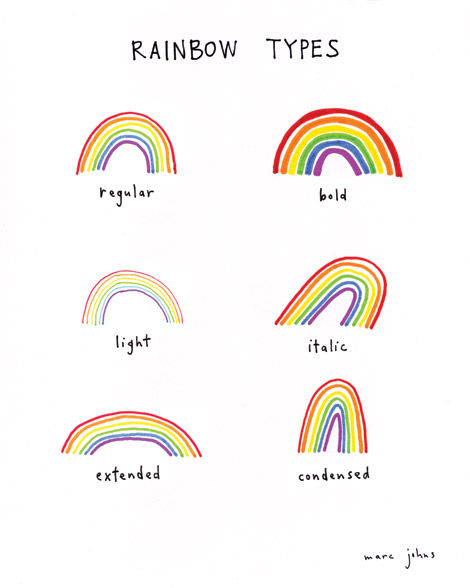 RAINBOW TYPES
regular
bold
light
italic
extended
condensed
marc johns